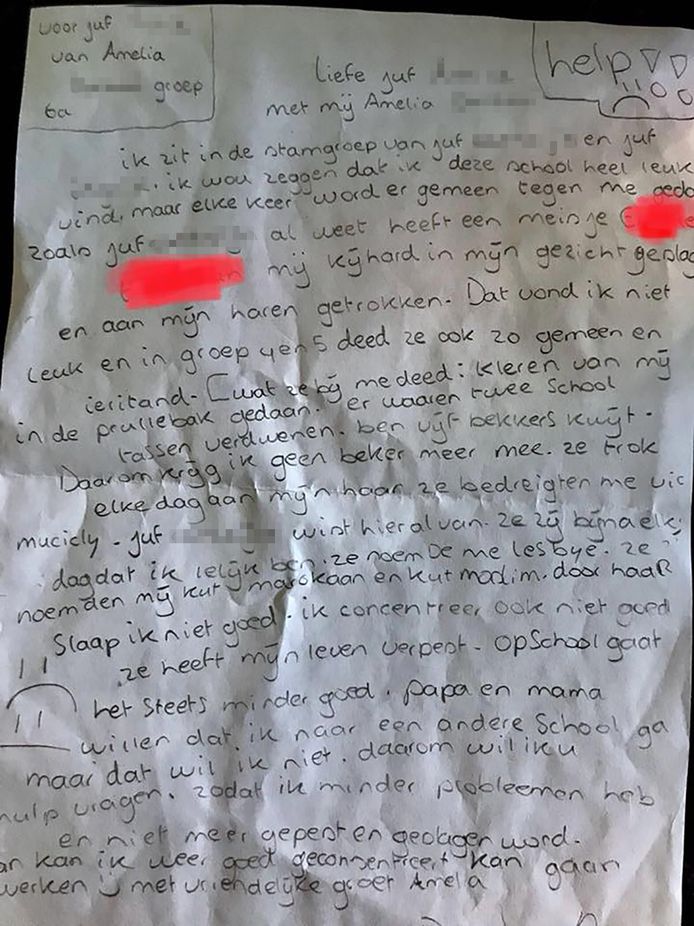 voor juf
van Amelia
groep
6a
help
Liefe juf
met mij Amelia
ik zit in de stamgroep van juf en juf
ik wou zeggen dat ik deze school heel leuk
vind, maar elke keer word er gemeen tegen me gedo
zoals juf al weet heeft een meisje
mij kijhard in mijn gezicht geslag
en aan mijn haren getrokken. Dat vond ik niet
leuk en in groep 4 en 5 deed ze ook zo gemeen en
ieritand. wat ze bij me deed: kleren van mij
in de prullebak gedaan. er waaren twee School
tassen verdwenen. ben vijf bekkers kwijt.
Daarom krijg ik geen beker meer mee. ze trok
elke dag aan mijn haar ze bedreigten me vic
mucicly. juf wist hier al van. ze zij bijna elk
dag dat ik lelijk ben. ze noemde me lesbye. ze
noemden mij kut marokaan en kut moslim. door haar
Slaap ik niet goed. ik concentreer ook niet goed
ze heeft mijn leven verpest. op School gaat
het Steets minder goed. papa en mama
willen dat ik naar een andere School ga
maar dat wil ik niet. daarom wil ik u
hulp vragen. zodat ik minder probleemen heb
en niet meer gepest en geslagen word.
an kan ik weer goed geconsentreert kan gaan
werken met vriendelijke groet Amelia